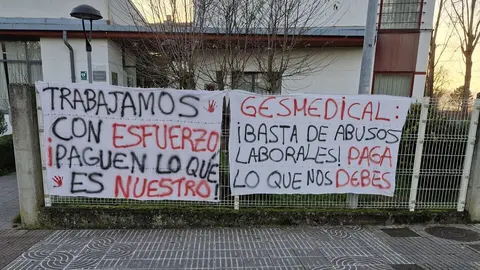 TRABAJAMOS
CON ESFUERZO
¡PAGUEN LO QUE
ES NUESTRO!
GESMEDICAL:
¡BASTA DE ABUSOS
LABORALES! PAGA
LO QUE NOS DEBES